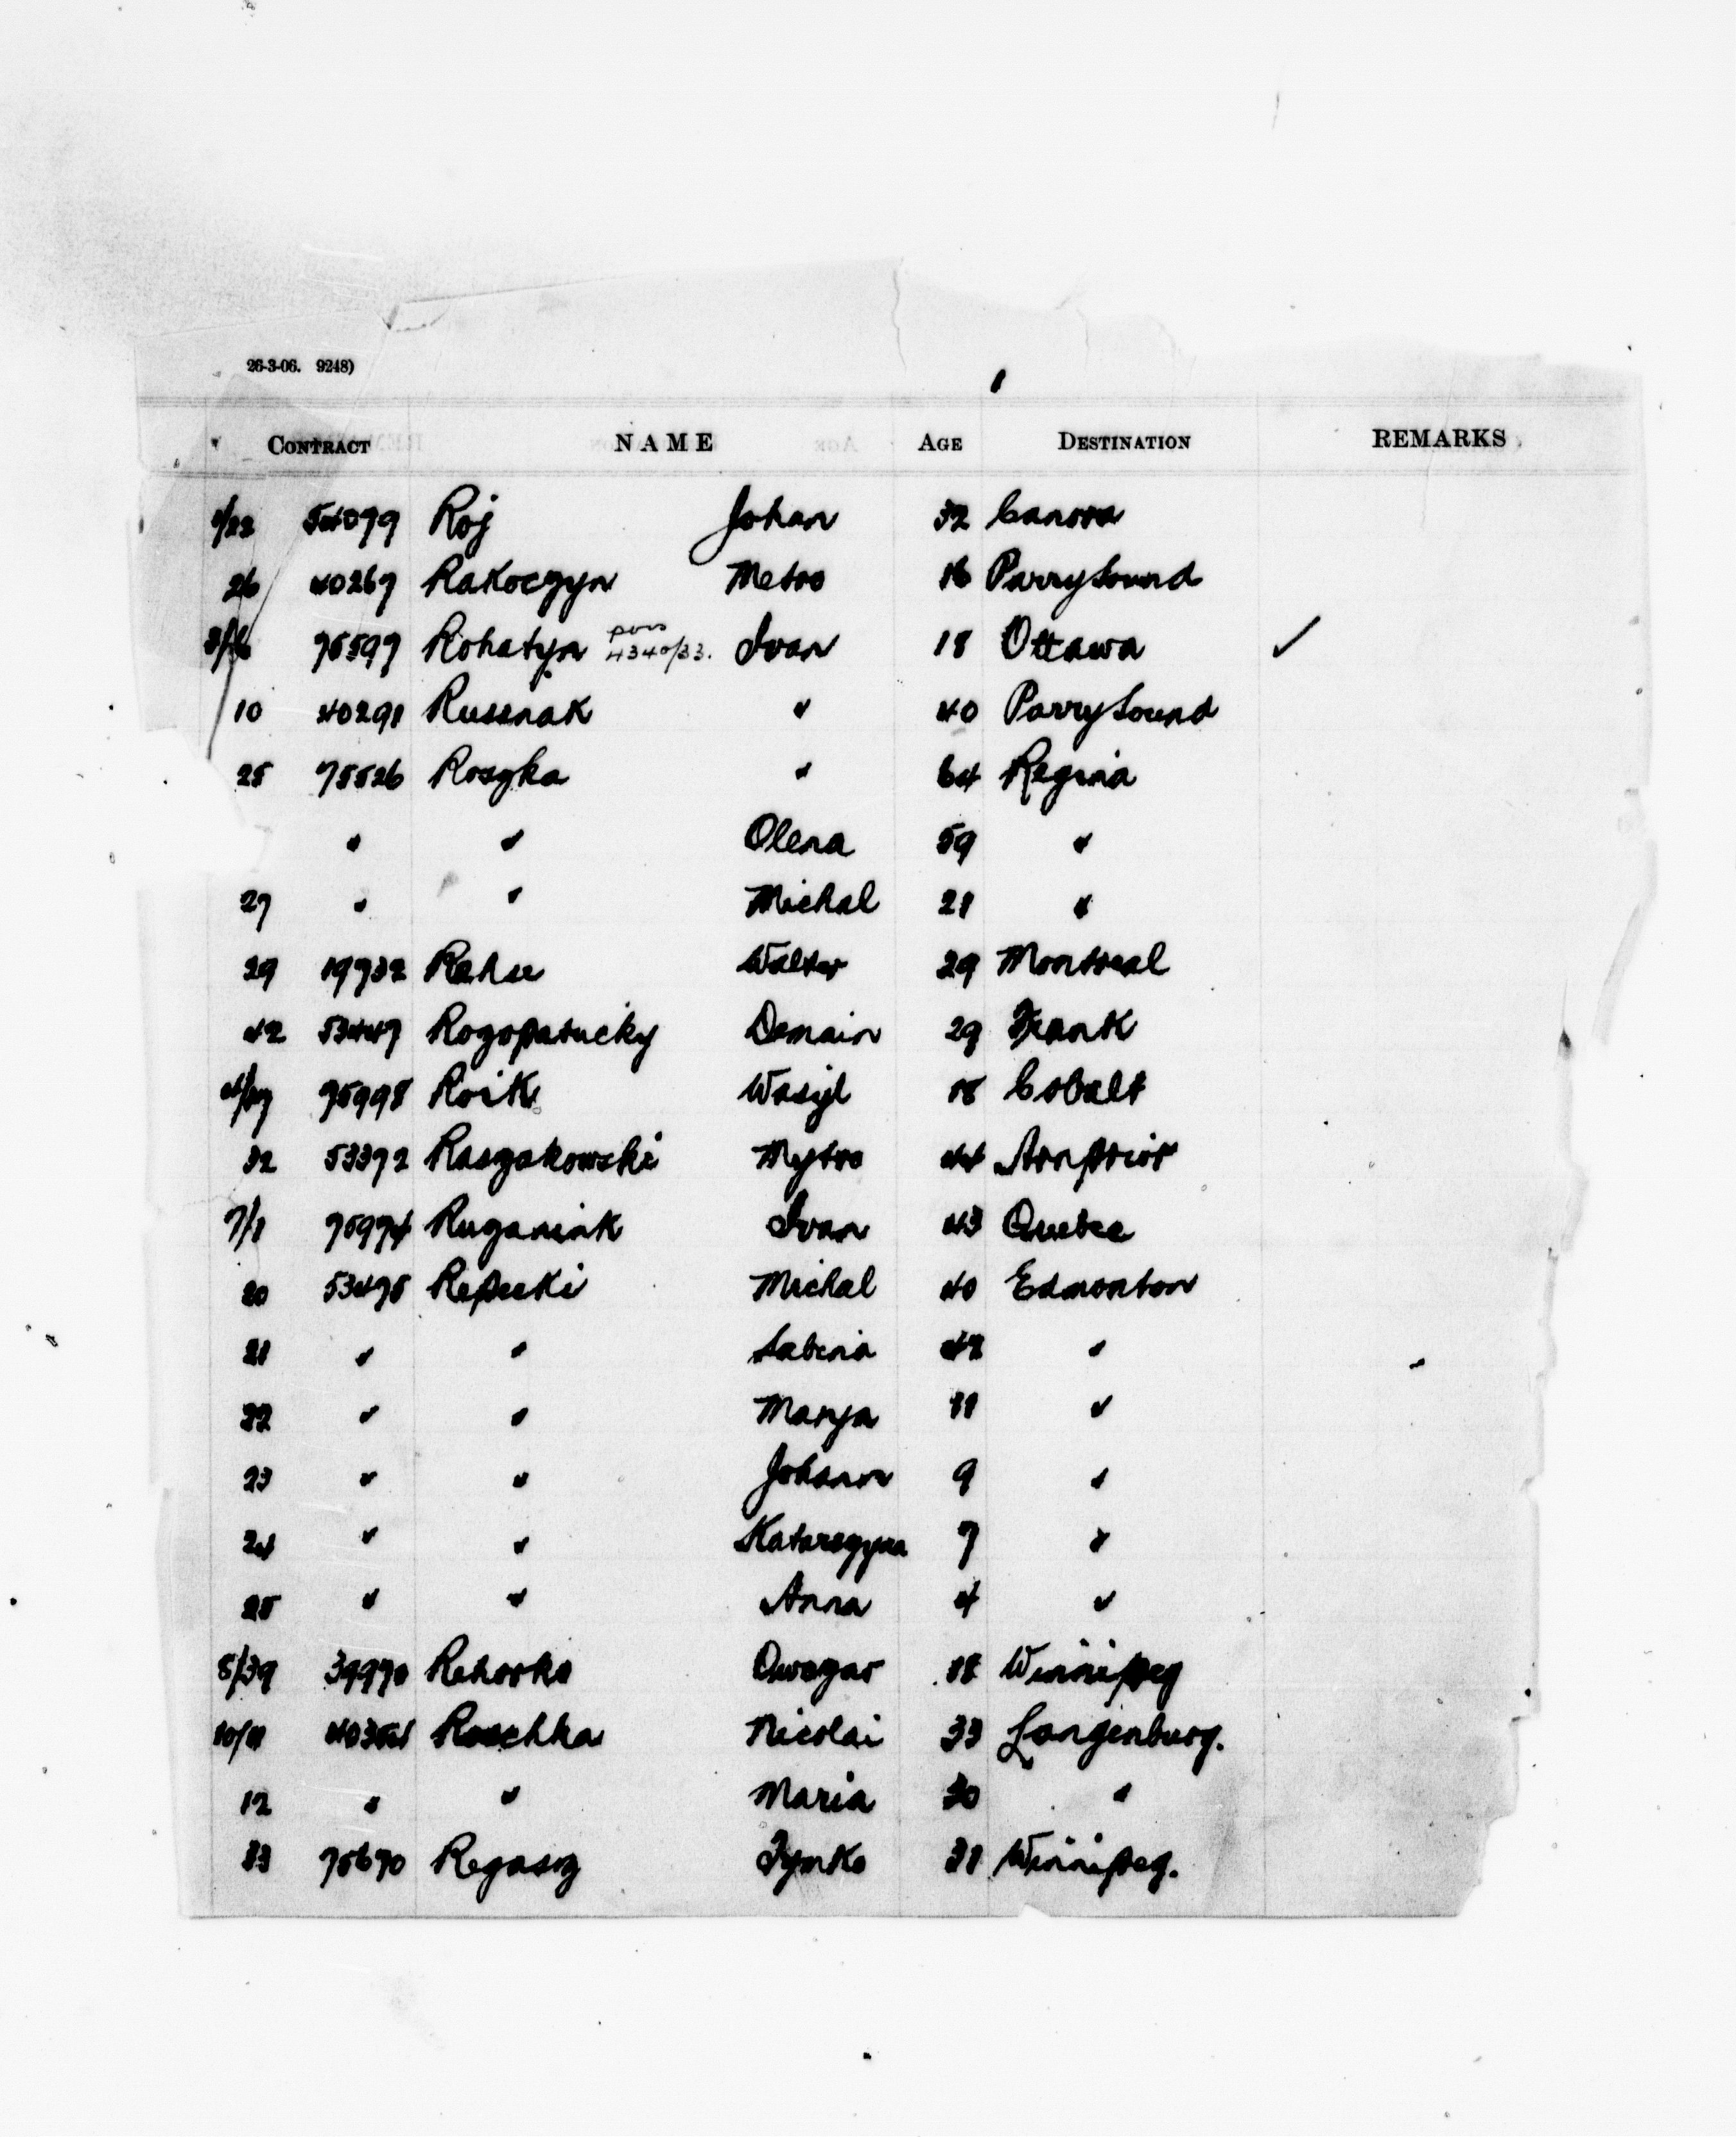 26-3-06. 9248)
CONTRACT NAME AGE DESTINATION REMARKS
1/22 54099 Roj Johan 32 Canora
26 40267 Rakoczyn Metro 16 Parry Sound
3/6 75597 Rohatyn 4340/33. Ivan 18 Ottawa ✓
10 40291 Russnak " 40 Parry Sound
25 75526 Roszka " 64 Regina
" " Olena 59 "
27 " " Michal 21 "
29 19732 Walter 29 Montreal
42 53447 Rogopatucky Demain 29 Frank
75998 Roik Wasyl 18 Cobalt
32 53392 Raszakowski Mytro 44 Arnprior
7/1 75974 Ivan 43 Quebec
20 53495 Repecki Michal 40 Edmonton
21 " " Sabina 42 "
22 " " Marya 11 "
23 " " Johann 9 "
24 " " Katarzyna 7 "
25 " " Anna 4 "
8/39 39970 Rehorko 18 Winnipeg
10/11 Roschka Nicolai 33 Langenburg.
12 " " Maria 30 "
33 75670 Regasz Tymko 31 Winnipeg.